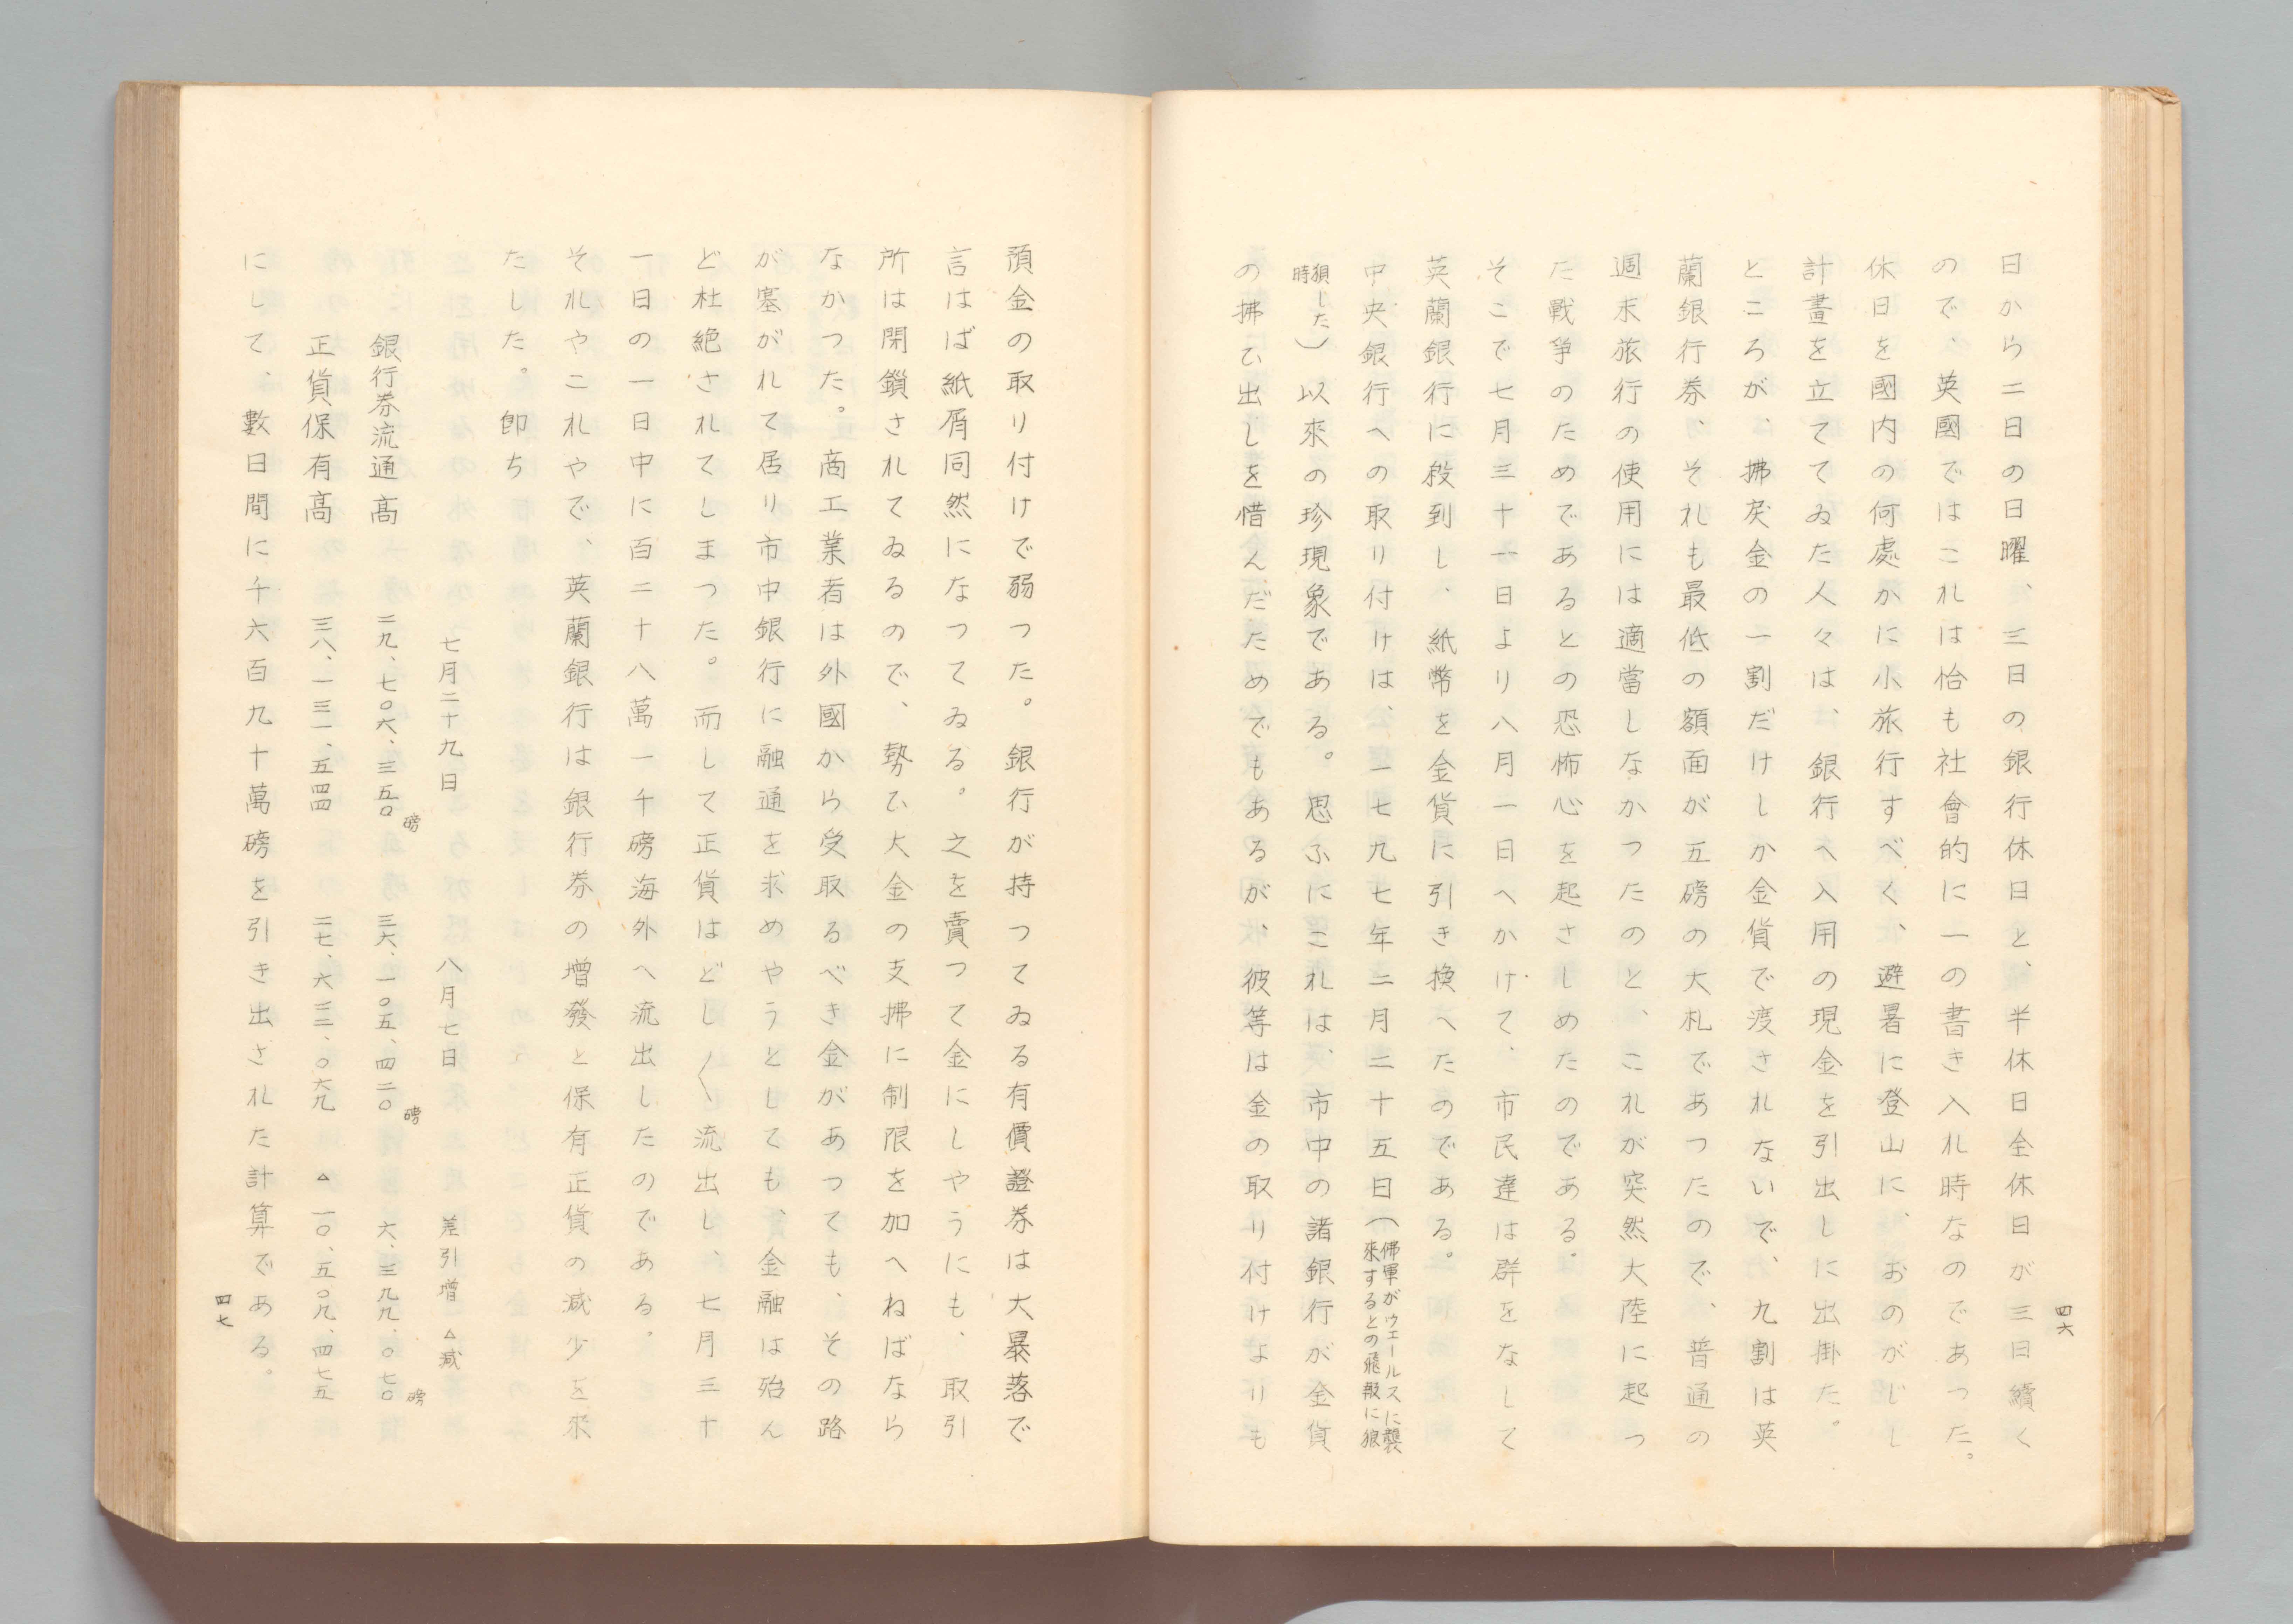 四六
日から二日の日曜、三日の銀行休日と、半休日全休日が三日續く
ので、英國ではこれは恰も社會的に一の書き入れ時なのであつた。
休日を國内の何處かに小旅行すべく、避暑に登山に、おのがじし
計畫を立ててゐた人々は、銀行へ入用の現金を引出しに出掛た。
ところが、拂戾金の一割だけしか金貨で渡されないで、九割は英
蘭銀行券、それも最低の額面が五磅の大札であつたので、普通の
週末旅行の使用には適當しなかつたのと、これが突然大陸に起つ
た戰爭のためであるとの恐怖心を起さしめたのである。
そこで七月三十一日より八月一日へかけて、市民達は群をなして
英蘭銀行に殺到し、紙幣を金貨に引き換へたのである。
中央銀行への取り付けは、一七九七年二月二十五日（佛軍がウエールスに襲
來するとの飛報に狼
狽した
時）以來の珍現象である。思ふにこれは、市中の諸銀行が金貨
の拂ひ出しを惜んだためでもあるが、彼等は金の取り付けよりも
預金の取り付けで弱つた。銀行が持つてゐる有價證券は大暴落で
言はば紙屑同然になつてゐる。之を賣つて金にしやうにも、取引
所は閉鎖されてゐるので、勢ひ大金の支拂に制限を加へねばなら
なかつた。商工業者は外國から受取るべき金があつても、その路
が塞がれて居り市中銀行に融通を求めやうとしても、金融は殆ん
ど杜絶されてしまつた。而して正貨はどし〱流出し、七月三十
一日の一日中に百二十八萬一千磅海外へ流出したのである。
それやこれやで、英蘭銀行は銀行券の增發と保有正貨の減少を來
たした。卽ち
七月二十九日　八月七日　差引增　△減
銀行券流通高　二九、七〇六、三五〇磅　三六、一〇五、四二〇磅　六、三九九、〇七〇磅
正貨保有高　三八、一三一、五四四　二七、六二二、〇六九　△一〇、五〇九、四七五
にして、數日間に千六百九十萬磅を引き出された計算である。
四七